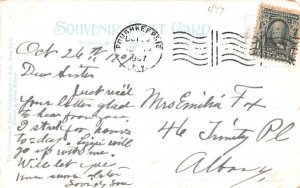 1177
SOUVENIR POST CARD
POUGHKEEPSIE
OCT 26
1907
N.Y.
Oct 26th 1907
Dear Sister
Just rec'd
your letter glad
to hear from you.
I start for home
to-day. Lizzie will
go up with me.
Will let you
know more later
Love
Mrs Emilia Fox
46 Trinity Pl
Albany